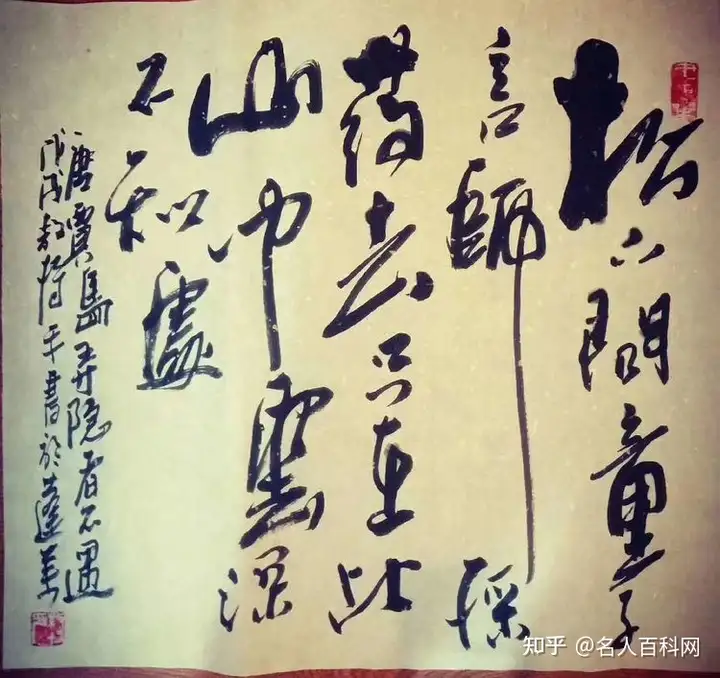 松下問童子
言師採
葯去只在此
山中雲深
不知處
唐賈島寻隐者不遇
戊戌 平書於蓬莱
知乎 @名人百科网